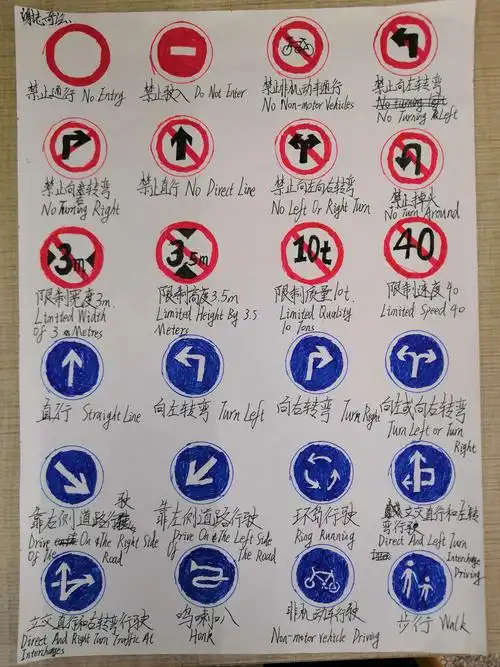 禁止通行 No Entry
禁止驶入 Do Not Inter
禁止非机动车通行
No Non-motor Vehicles
禁止向左转弯
No turning left
No Turning Left
禁止向右转弯
No Turning Right
禁止直行 No Direct Line
禁止向左向右转弯
No Left Or Right Turn
禁止掉头
No Turn Around
3m
限制宽度3m.
Limited Width
Of 3 Metres
3.5m
限制高度3.5m
Limited Height By 3.5
Meters
10t
限制质量10t.
Limited Quality
10 Tons
40
限制速度40
Limited Speed 40
直行 Straight Line
向左转弯 Turn Left
向右转弯 Turn Right
向左或向右转弯
Turn Left or Turn
Right
靠右侧道路行驶
Drive On The Right Side
Of The Road
靠左侧道路行驶
Drive On The Left Side
Of The Road
环岛行驶
Ring Running
立交直行和左转
弯行驶
Direct And Left Turn
Interchange
Driving
立交直行和右转弯行驶
Direct And Right Turn Traffic At
Interchages
鸣喇叭
Honk
非机动车行驶
Non-motor Vehicle Driving
步行 Walk